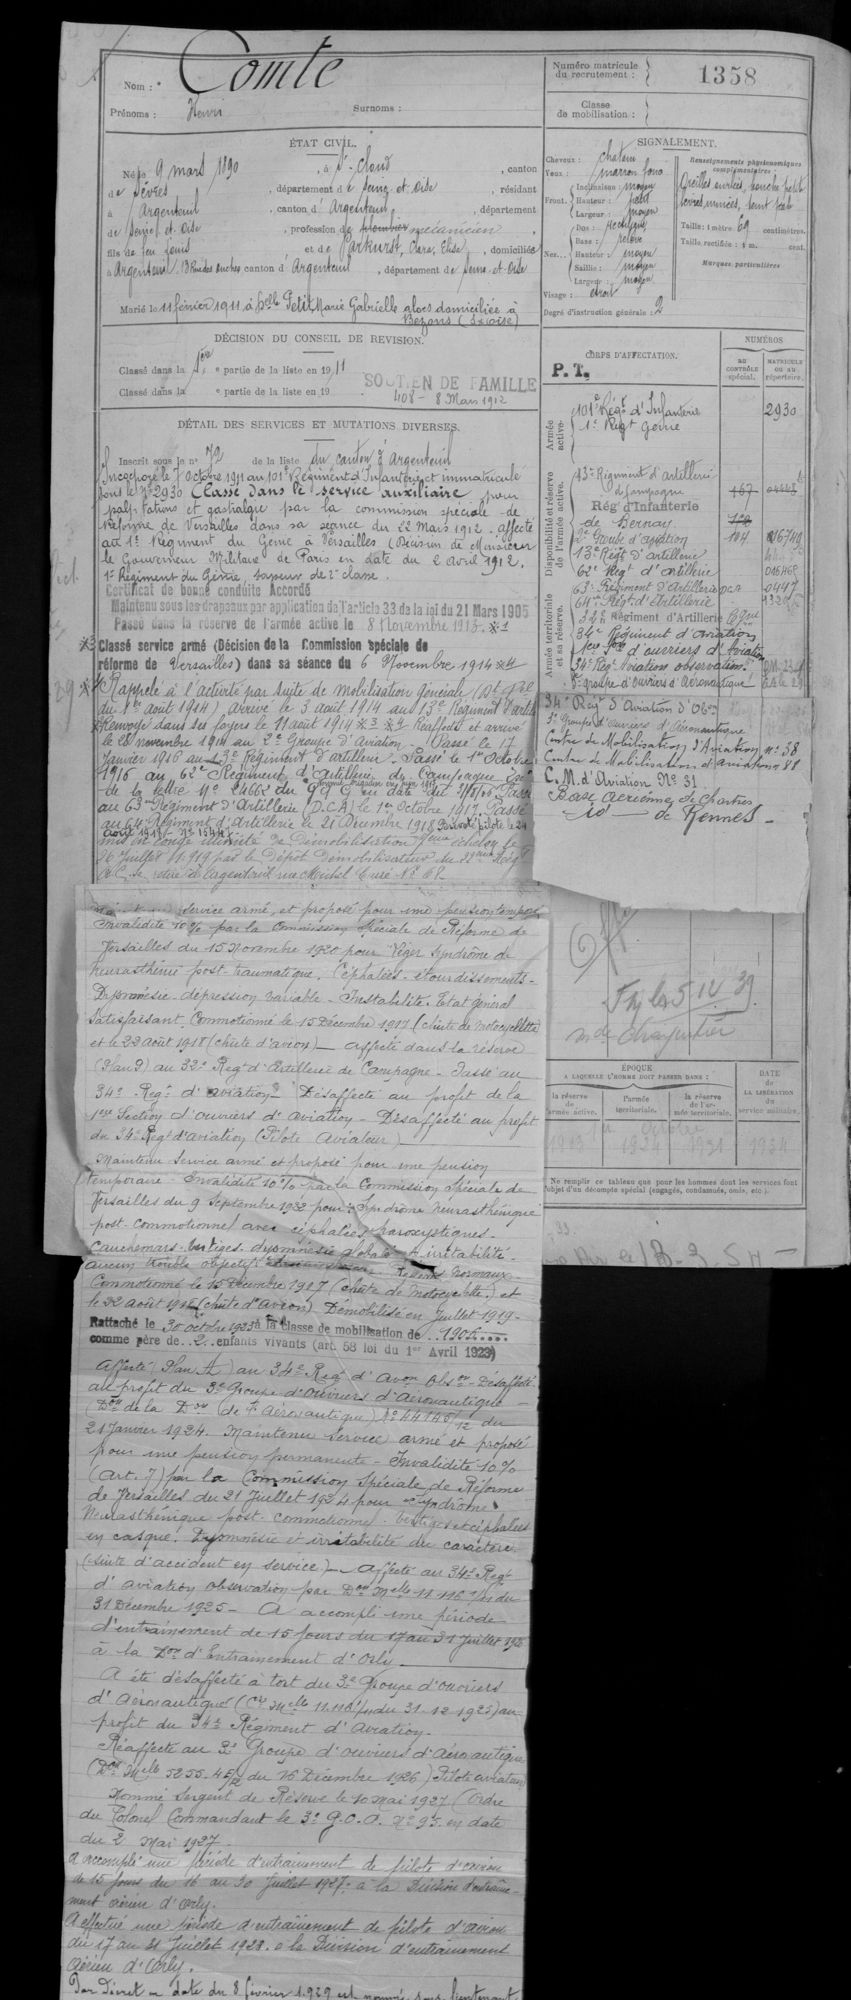 Nom : Comte
Prénoms : Henri Surnoms :
Numéro matricule du recrutement : 1358
Classe de mobilisation :
ÉTAT CIVIL.
Né le 9 mars 1890, à St-Cloud, canton
de Sèvres, département de Seine-et-Oise, résidant
à Argenteuil, canton d'Argenteuil, département
de Seine et Oise, profession de plombier mécanicien
fils de feu Louis et de Parkurst, Clara, Elise, domiciliés
à Argenteuil, canton d'Argenteuil, département de Seine-et-Oise
Marié le 11 février 1911 à Delle Petit Marie Gabrielle alors domiciliée à
Bezons (S et Oise)
SIGNALEMENT.
Cheveux : chatain
Yeux : marron
Front. Inclinaison : moyen
Hauteur : petit
Largeur : moyen
Nez... Dos : rectiligne
Base : relevé
Hauteur : moyen
Saillie : moyen
Largeur : moyen
Visage : étroit
Degré d'instruction générale : 2
Renseignements physionomiques complémentaires :
Taille : 1 mètre 69 centimètres.
Taille rectifiée : 1 m. cent.
Marques particulières
DÉCISION DU CONSEIL DE REVISION.
Classé dans la 1ère partie de la liste en 1911
Classé dans la e partie de la liste en 19
SOUTIEN DE FAMILLE
408 - 8 Mars 1912
DÉTAIL DES SERVICES ET MUTATIONS DIVERSES.
Inscrit sous le n° 72 de la liste du canton d'Argenteuil
Incorporé le 7 Octobre 1911 au 101e Régiment d'Infanterie et immatriculé
sous le N° 2930 Classé dans le service auxiliaire pour
palpitations et gastralgie par la commission spéciale de
réforme de Versailles dans sa séance du 22 Mars 1912. affecté
au 1er Régiment du Génie à Versailles (Décision de Monsieur
le Gouverneur Militaire de Paris en date du 2 Avril 1912.
1er Régiment du Génie, sapeur de 2e classe.
Certificat de bonne conduite Accordé
Maintenu sous les drapeaux par application de l'article 33 de la loi du 21 Mars 1905
Passé dans la réserve de l'armée active le 8 Novembre 1913.
Classé service armé (Décision de la Commission spéciale de
réforme de Versailles) dans sa séance du 6 Novembre 1914
Rappelé à l'activité par suite de Mobilisation Générale
du 1er août 1914) Arrivé le 3 août 1914 au 13e Régiment d'artie
Renvoyé dans ses foyers le 11 août 1914 Réaffecté et arrivé
le 28 novembre 1914 au 2e Groupe d'Aviation. Passé le 17
Janvier 1916 au 13e Régiment d'artillerie. Passé le 1er Octobre
1916 au 62e Régiment d'artillerie de Campagne
de la lettre N° du G Q G en date du Passé
au 63me Régiment d'Artillerie (D.C.A) le 1er Octobre 1917. Passé
au 64e Régiment d'Artillerie le 21 Décembre 1918
mis en congé illimité de Démobilisation échelon le
26 Juillet 1919 par le Dépôt démobilisateur du
se retire à Argenteuil rue Michel Carré
CORPS D'AFFECTATION.
P. T.
NUMÉROS
AU CONTRÔLE spécial.
MATRICULE OU AU répertoire.
Armée active.
101e Régt d'Infanterie 2930
1er Régt Génie
Disponibilité et réserve de l'armée active.
13e Régiment d'artillerie
de Campagne 167
Rég d'Infanterie
de Bernay
2e Groupe d'aviation 104
13e Régt d'artillerie
62e Régt d'artillerie
63e Régiment d'Artillerie DCA 0447
64e Régt d'Artillerie
Armée territoriale et sa réserve.
32e Régiment d'Artillerie
34e Régiment d'Aviation
d'ouvriers d'Aviation
34e Régt Aviation observation
3e groupe d'ouvriers d'Aéronautique
34e Régt d'Aviation d'Obon
3e Groupe d'ouvriers d'Aéronautique
Centre de Mobilisation d'Aviation n° 38
Centre de Mobilisation d'aviation 88
C. M. d'Aviation N° 31
Base aérienne de Chartres
—id— de Rennes
ÉPOQUE
A LAQUELLE L'HOMME DOIT PASSER DANS :
la réserve de l'armée active.
l'armée territoriale.
la réserve de l'armée territoriale.
DATE de LA LIBÉRATION du service militaire.
1913 1924 1931 1934
Ne remplir ce tableau que pour les hommes dont les services font
l'objet d'un décompte spécial (engagés, condamnés, omis, etc.).
service armé, et proposé pour une pension temporaire
Invalidité 10% par la Commission Spéciale de Réforme de
Versailles du 15 Novembre 1920 pour léger syndrôme de
neurasthénie post-traumatique. Céphalées. étourdissements-
Dysmnésie - dépression variable - Instabilité. Etat général
satisfaisant. Commotionné le 15 Décembre 1917 (chûte de motocyclette)
et le 22 août 1918 (chûte d'avion) — affecté dans la réserve
(Plan P) au 32e Regt d'Artillerie de Campagne - Passé au
34e Regt d'aviation - Désaffecté au profit de la
1ere Section d'ouvriers d'aviation - Désaffecté au profit
du 34e Regt d'aviation (Pilote Aviateur)
Maintenu service armé et proposé pour une pension
temporaire - Invalidité 10% par la Commission Spéciale de
Versailles du 9 Septembre 1922 pour: Syndrôme neurasthénique
post-commotionnel avec céphalées paroxystiques -
Cauchemars - Vertiges. dysmnésie globale et irritabilité -
aucun trouble objectif Réflexes normaux -
Commotionné le 15 Décembre 1917 (chûte de motocyclette) et
le 22 août 1918 (chûte d'avion) Démobilisé en Juillet 1919-
Rattaché le 30 octobre 1923 à la classe de mobilisation de 1906
comme père de 2 enfants vivants (art. 58 loi du 1er Avril 1923)
Affecté (Plan A) au 34e Regt d'Avon Obson - Désaffecté
au profit du 3e Groupe d'ouvriers d'Aéronautique -
(Don de la Don de l'Aéronautique) N° 44145/12 du
21 Janvier 1924. Maintenu service armé et proposé
pour une pension permanente - Invalidité 10%
(art. 7) par la Commission Spéciale de Réforme
de Versailles du 21 Juillet 1924 pour syndrôme
Neurasthénique post-commotionnel. Vertiges et céphalées
en casque. Dysmnésie et irritabilité du caractère
(suite d'accident en service) — Affecté au 34e Regt
d'aviation observation par Don Melle 11.116 du
31 Décembre 1925 - A accompli une période
d'entrainement de 15 Jours du 17 au 31 Juillet 1926
à la Don d'Entrainement d'Orly -
A été désaffecté à tort du 3e Groupe d'ouvriers
d'Aéronautique (Cre Melle 11.116 du 31-12-1925) au
profit du 34e Régiment d'Aviation -
Réaffecté au 3e Groupe d'ouvriers d'Aéronautique
(Don Melle 5255-4 du 16 Décembre 1926) Pilote aviateur
Nommé Sergent de Réserve le 10 mai 1927 (Ordre
du Colonel Commandant le 3e G.O.A. N° 95 en date
du 2 Mai 1927.
A accompli une période d'entrainement de pilote d'avion
de 15 jours du 16 au 30 Juillet 1927 à la Division d'entraine-
ment aérien d'Orly.
A effectué une période d'entraînement de pilote d'avion
du 17 au 31 Juillet 1928 à la Division d'entrainement
aérien d'Orly.
Par Décret en date du 8 février 1929 est nommé sous-lieutenant